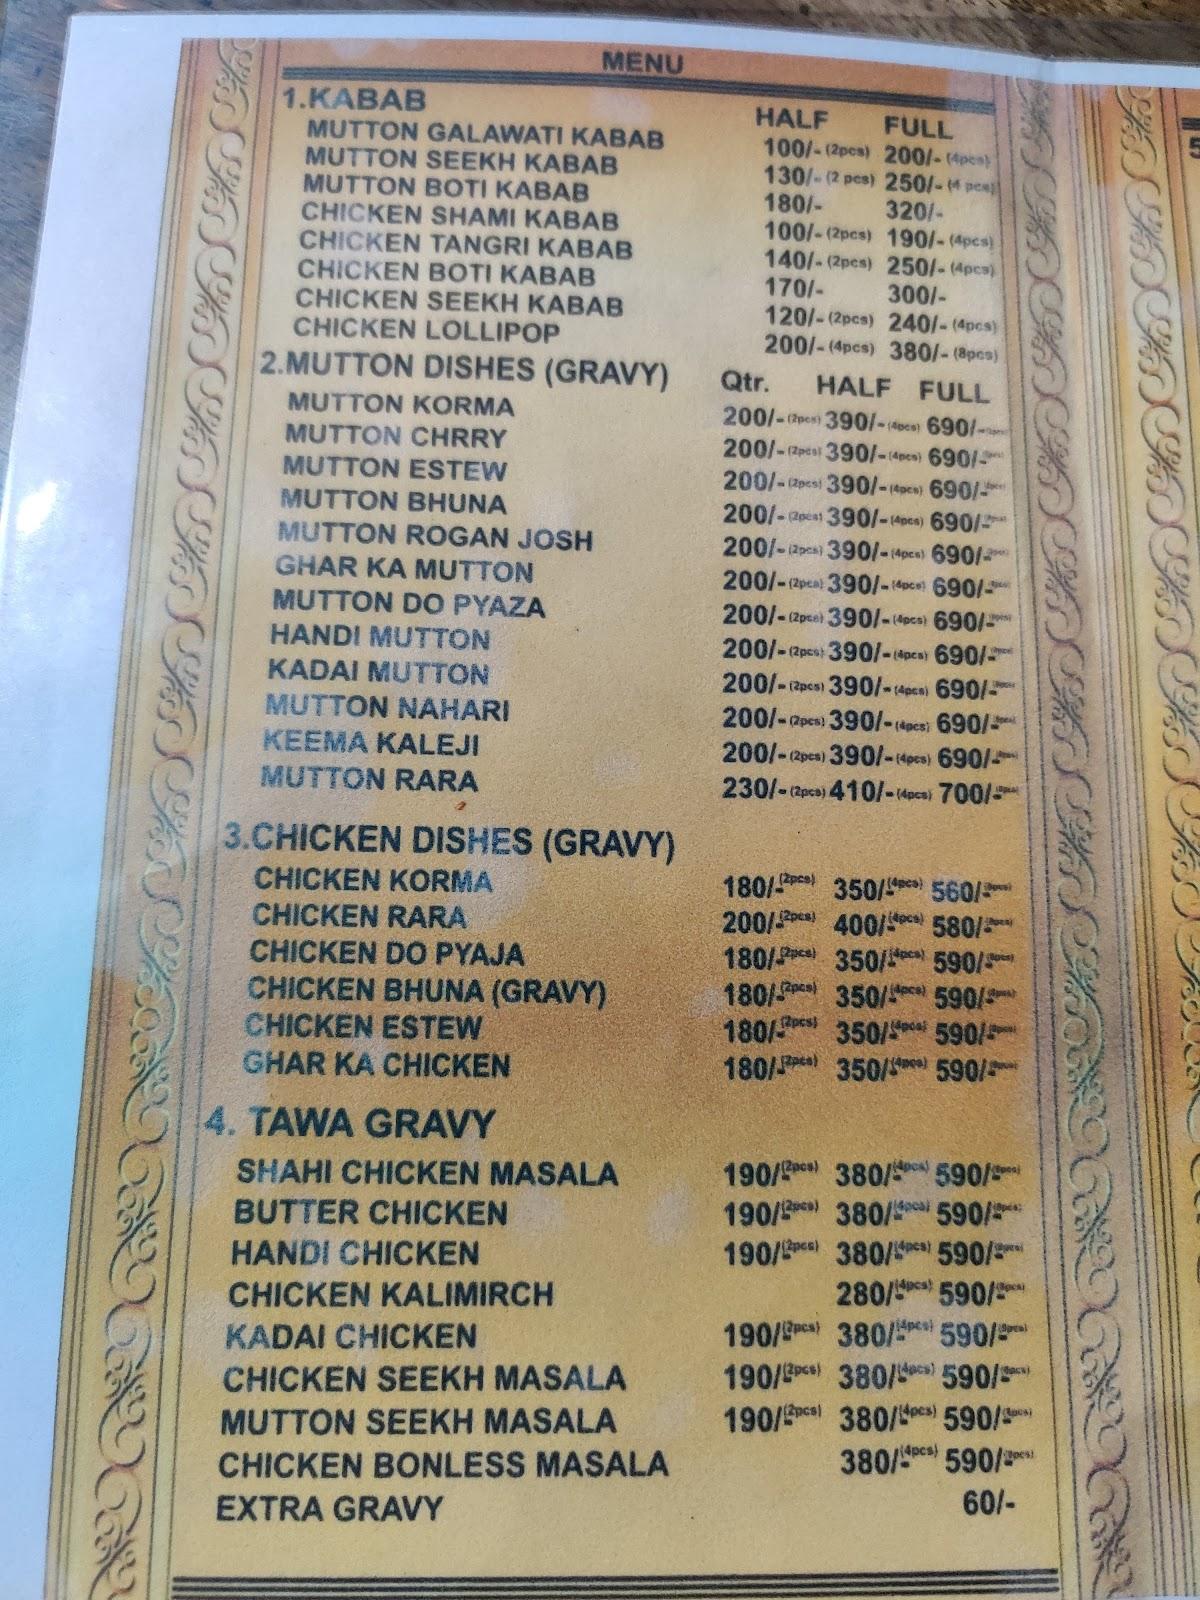 MENU
1.KABAB HALF FULL
MUTTON GALAWATI KABAB 100/- (2pcs) 200/- (4pcs)
MUTTON SEEKH KABAB 130/- (2 pcs) 250/- (4 pcs)
MUTTON BOTI KABAB 180/- 320/-
CHICKEN SHAMI KABAB 100/- (2pcs) 190/- (4pcs)
CHICKEN TANGRI KABAB 140/- (2pcs) 250/- (4pcs)
CHICKEN BOTI KABAB 170/- 300/-
CHICKEN SEEKH KABAB 120/- (2pcs) 240/- (4pcs)
CHICKEN LOLLIPOP 200/- (4pcs) 380/- (8pcs)
2.MUTTON DISHES (GRAVY) Qtr. HALF FULL
MUTTON KORMA 200/- (2pcs) 390/- (4pcs) 690/-
MUTTON CHRRY 200/- (2pcs) 390/- (4pcs) 690/-
MUTTON ESTEW 200/- (2pcs) 390/- (4pcs) 690/-
MUTTON BHUNA 200/- (2pcs) 390/- (4pcs) 690/-
MUTTON ROGAN JOSH 200/- (2pcs) 390/- (4pcs) 690/-
GHAR KA MUTTON 200/- (2pcs) 390/- (4pcs) 690/-
MUTTON DO PYAZA 200/- (2pcs) 390/- (4pcs) 690/-
HANDI MUTTON 200/- (2pcs) 390/- (4pcs) 690/-
KADAI MUTTON 200/- (2pcs) 390/- (4pcs) 690/-
MUTTON NAHARI 200/- (2pcs) 390/- (4pcs) 690/-
KEEMA KALEJI 200/- (2pcs) 390/- (4pcs) 690/-
MUTTON RARA 230/- (2pcs) 410/- (4pcs) 700/-
3.CHICKEN DISHES (GRAVY)
CHICKEN KORMA 180/- (2pcs) 350/- (4pcs) 560/-
CHICKEN RARA 200/- (2pcs) 400/- (4pcs) 580/-
CHICKEN DO PYAJA 180/- (2pcs) 350/- (4pcs) 590/-
CHICKEN BHUNA (GRAVY) 180/- (2pcs) 350/- (4pcs) 590/-
CHICKEN ESTEW 180/- (2pcs) 350/- (4pcs) 590/-
GHAR KA CHICKEN 180/- (2pcs) 350/- (4pcs) 590/-
4. TAWA GRAVY
SHAHI CHICKEN MASALA 190/- (2pcs) 380/- (4pcs) 590/-
BUTTER CHICKEN 190/- (2pcs) 380/- (4pcs) 590/-
HANDI CHICKEN 190/- (2pcs) 380/- (4pcs) 590/-
CHICKEN KALIMIRCH 280/- (4pcs) 590/-
KADAI CHICKEN 190/- (2pcs) 380/- (4pcs) 590/-
CHICKEN SEEKH MASALA 190/- (2pcs) 380/- (4pcs) 590/-
MUTTON SEEKH MASALA 190/- (2pcs) 380/- (4pcs) 590/-
CHICKEN BONLESS MASALA 380/- (4pcs) 590/-
EXTRA GRAVY 60/-